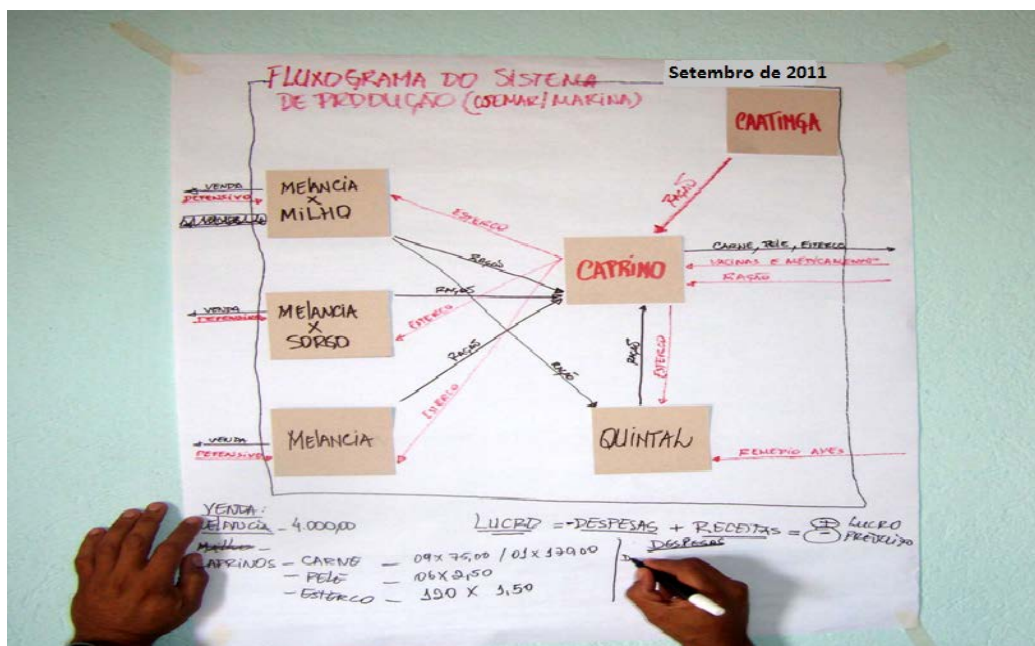 FLUXOGRAMA DO SISTEMA
DE PRODUÇÃO (OSEMAR/MARINA)
Setembro de 2011
CAATINGA
RAÇÃO
VENDA
DEFENSIVO
MELANCIA
X
MILHO
ESTERCO
RAÇÃO
CAPRINO
CARNE, PELE, ESTERCO
VACINAS E MEDICAMENTO
RAÇÃO
VENDA
DEFENSIVO
MELANCIA
X
SORGO
RAÇÃO
ESTERCO
RAÇÃO
RAÇÃO
RAÇÃO
ESTERCO
VENDA
DEFENSIVO
MELANCIA
ESTERCO
QUINTAL
REMÉDIO AVES
VENDA:
MELANCIA - 4.000,00
CAPRINOS - CARNE - 09 X 75,00 / 01 X 120,00
- PELE - 06 X 2,50
- ESTERCO - 120 X 1,50
LUCRO = - DESPESAS + RECEITAS = + LUCRO
- PREJUIZO
DESPESAS